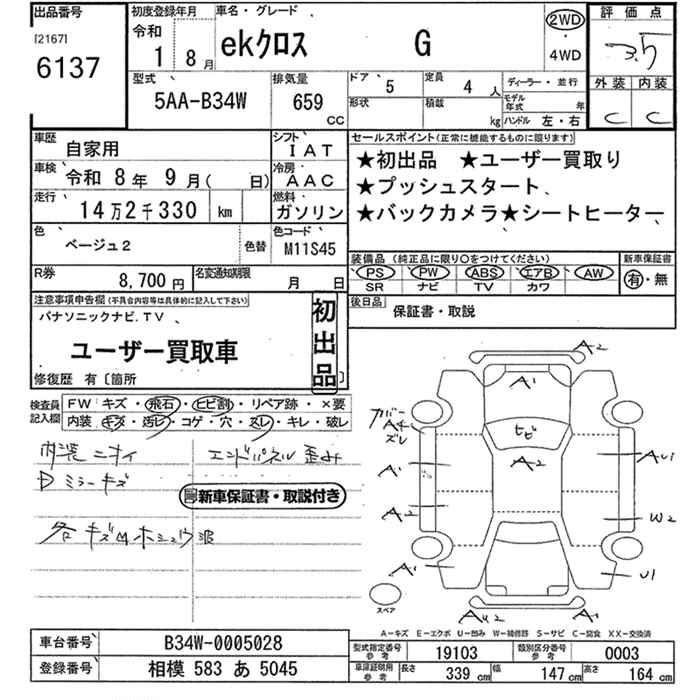 出品番号
[2167]
6137
初度登録年月
令和
1 8月
車名・グレード
ekクロス G
2WD
・
4WD
評価点
3.5
外装 内装
C C
型式
5AA-B34W
排気量
659
CC
ドア 5
定員 4 人
形状
積載 kg
ディーラー・並行
モデル年式 年
ハンドル 左・右
車歴 自家用
シフト IAT
車検 令和 8年 9月( 日)
冷房 AAC
走行 14万2千330 km
燃料 ガソリン
色 ベージュ2
色替
色コード M11S45
R券 8,700円
名変通知期限 月 日
セールスポイント(正常に機能するものに限ります)
★初出品 ★ユーザー買取り
★プッシュスタート
★バックカメラ★シートヒーター
装備品 (純正品に限り〇をつけてください)
新車保証書
PS PW ABS エアB AW
SR ナビ TV カワ
有・無
後日品
保証書・取説
注意事項申告欄(不具合内容等は具体的に記入して下さい)
パナソニックナビ.TV
初出品
ユーザー買取車
修復歴 有〔箇所 〕
検査員記入欄
FW キズ・飛石・ヒビ割・リペア跡・×要
内装 キズ・汚レ・コゲ・穴・スレ・キレ・破レ
内装ニオイ
エンドパネル歪み
D ミラーキズ
新車保証書・取説付き
各キズ凹
A2
A1
カバー
Aキ
ズレ
ヒビ
A2
A1
AU1
A2
W2
A1
U1
スペア
AU2
A1
A-キズ E-エクボ U-凹み W-補修跡 S-サビ C-腐食 XX-交換済
車台番号 B34W-0005028
登録番号 相模 583 あ 5045
型式指定番号 参考 19103
類別区分番号 参考 0003
車庫証明用 参考
長さ 339 cm
幅 147 cm
高さ 164 cm